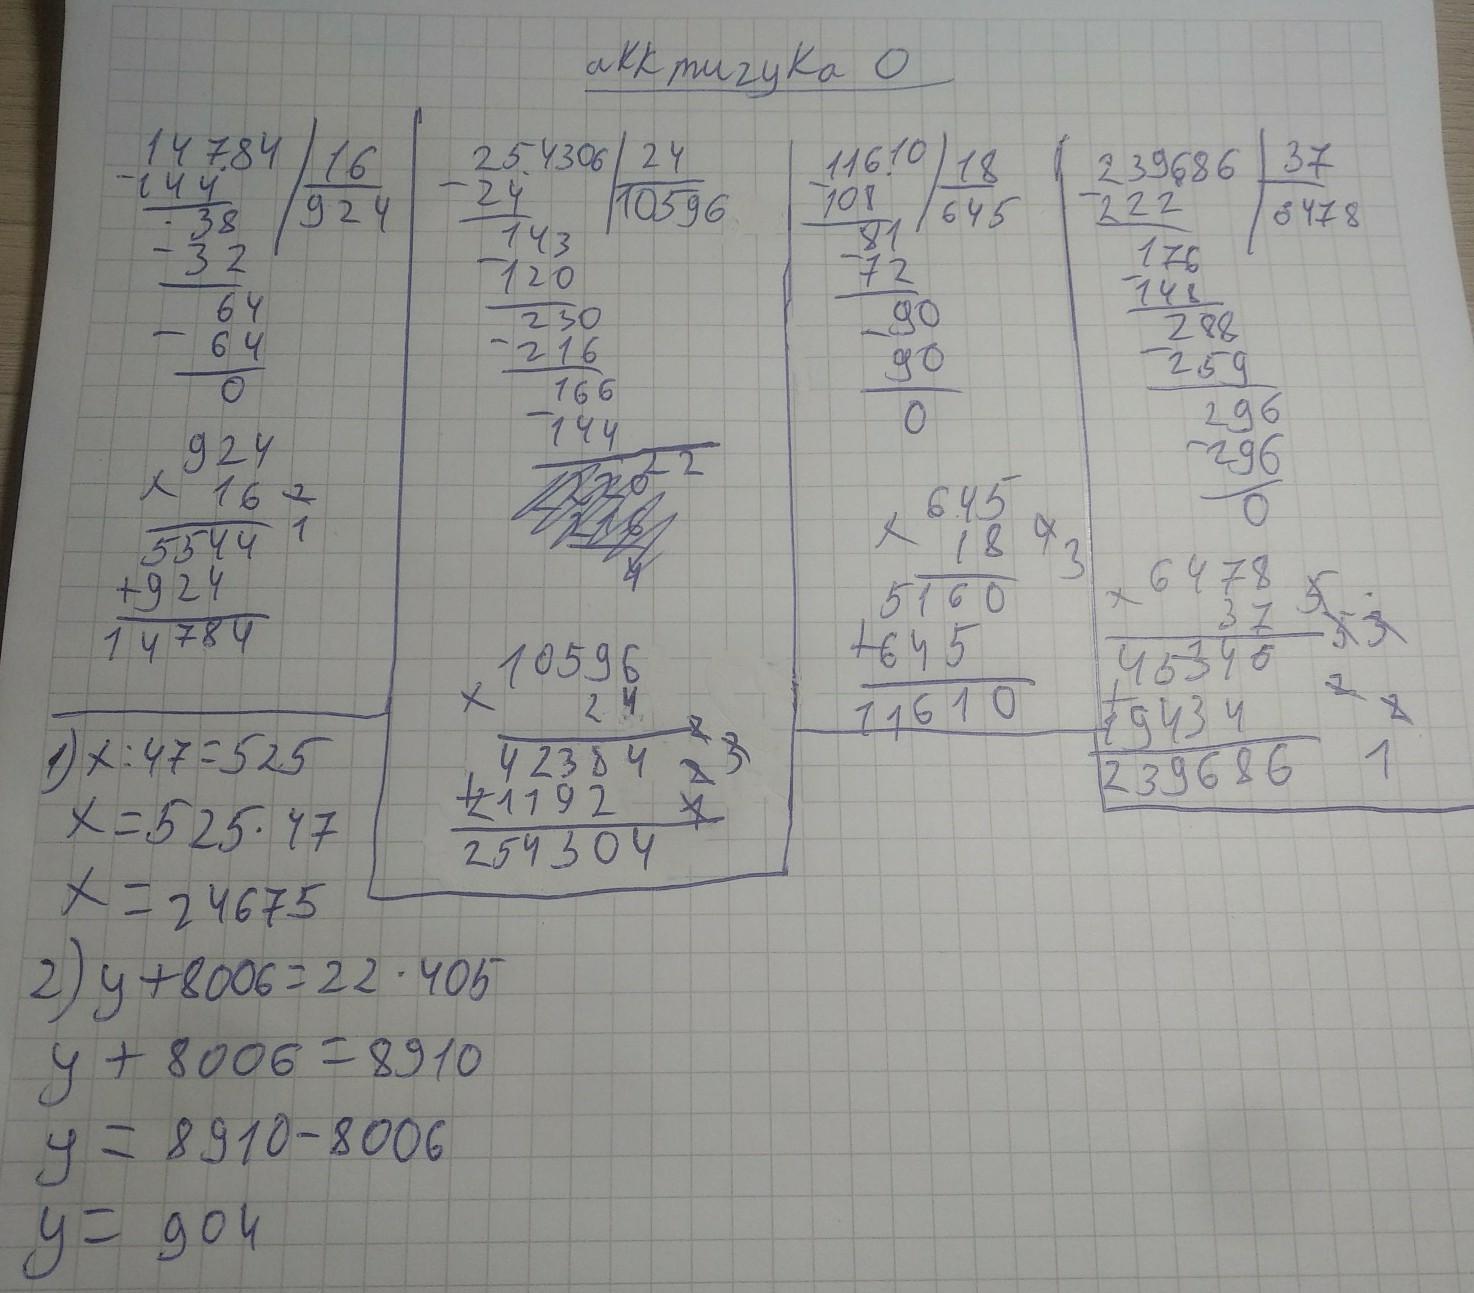 аккмигука 0
14784 16
- 144 924
38
- 32
64
- 64
0
924
x 16 2
5544 1
+924
14784
254306 24
- 24 10596
143
- 120
230
- 216
166
- 144
22
4
10596
x 24
42384
+21192
254304
11610 18
- 108 645
81
- 72
90
- 90
0
645
x 18 4
3
5160
+645
11610
239686 37
- 222 6478
176
- 148
288
- 259
296
- 296
0
6478
x 37
45346
+19434
239686 1
1) x:47=525
x=525·47
x=24675
2) y+8006=22·405
y+8006=8910
y=8910-8006
y=904